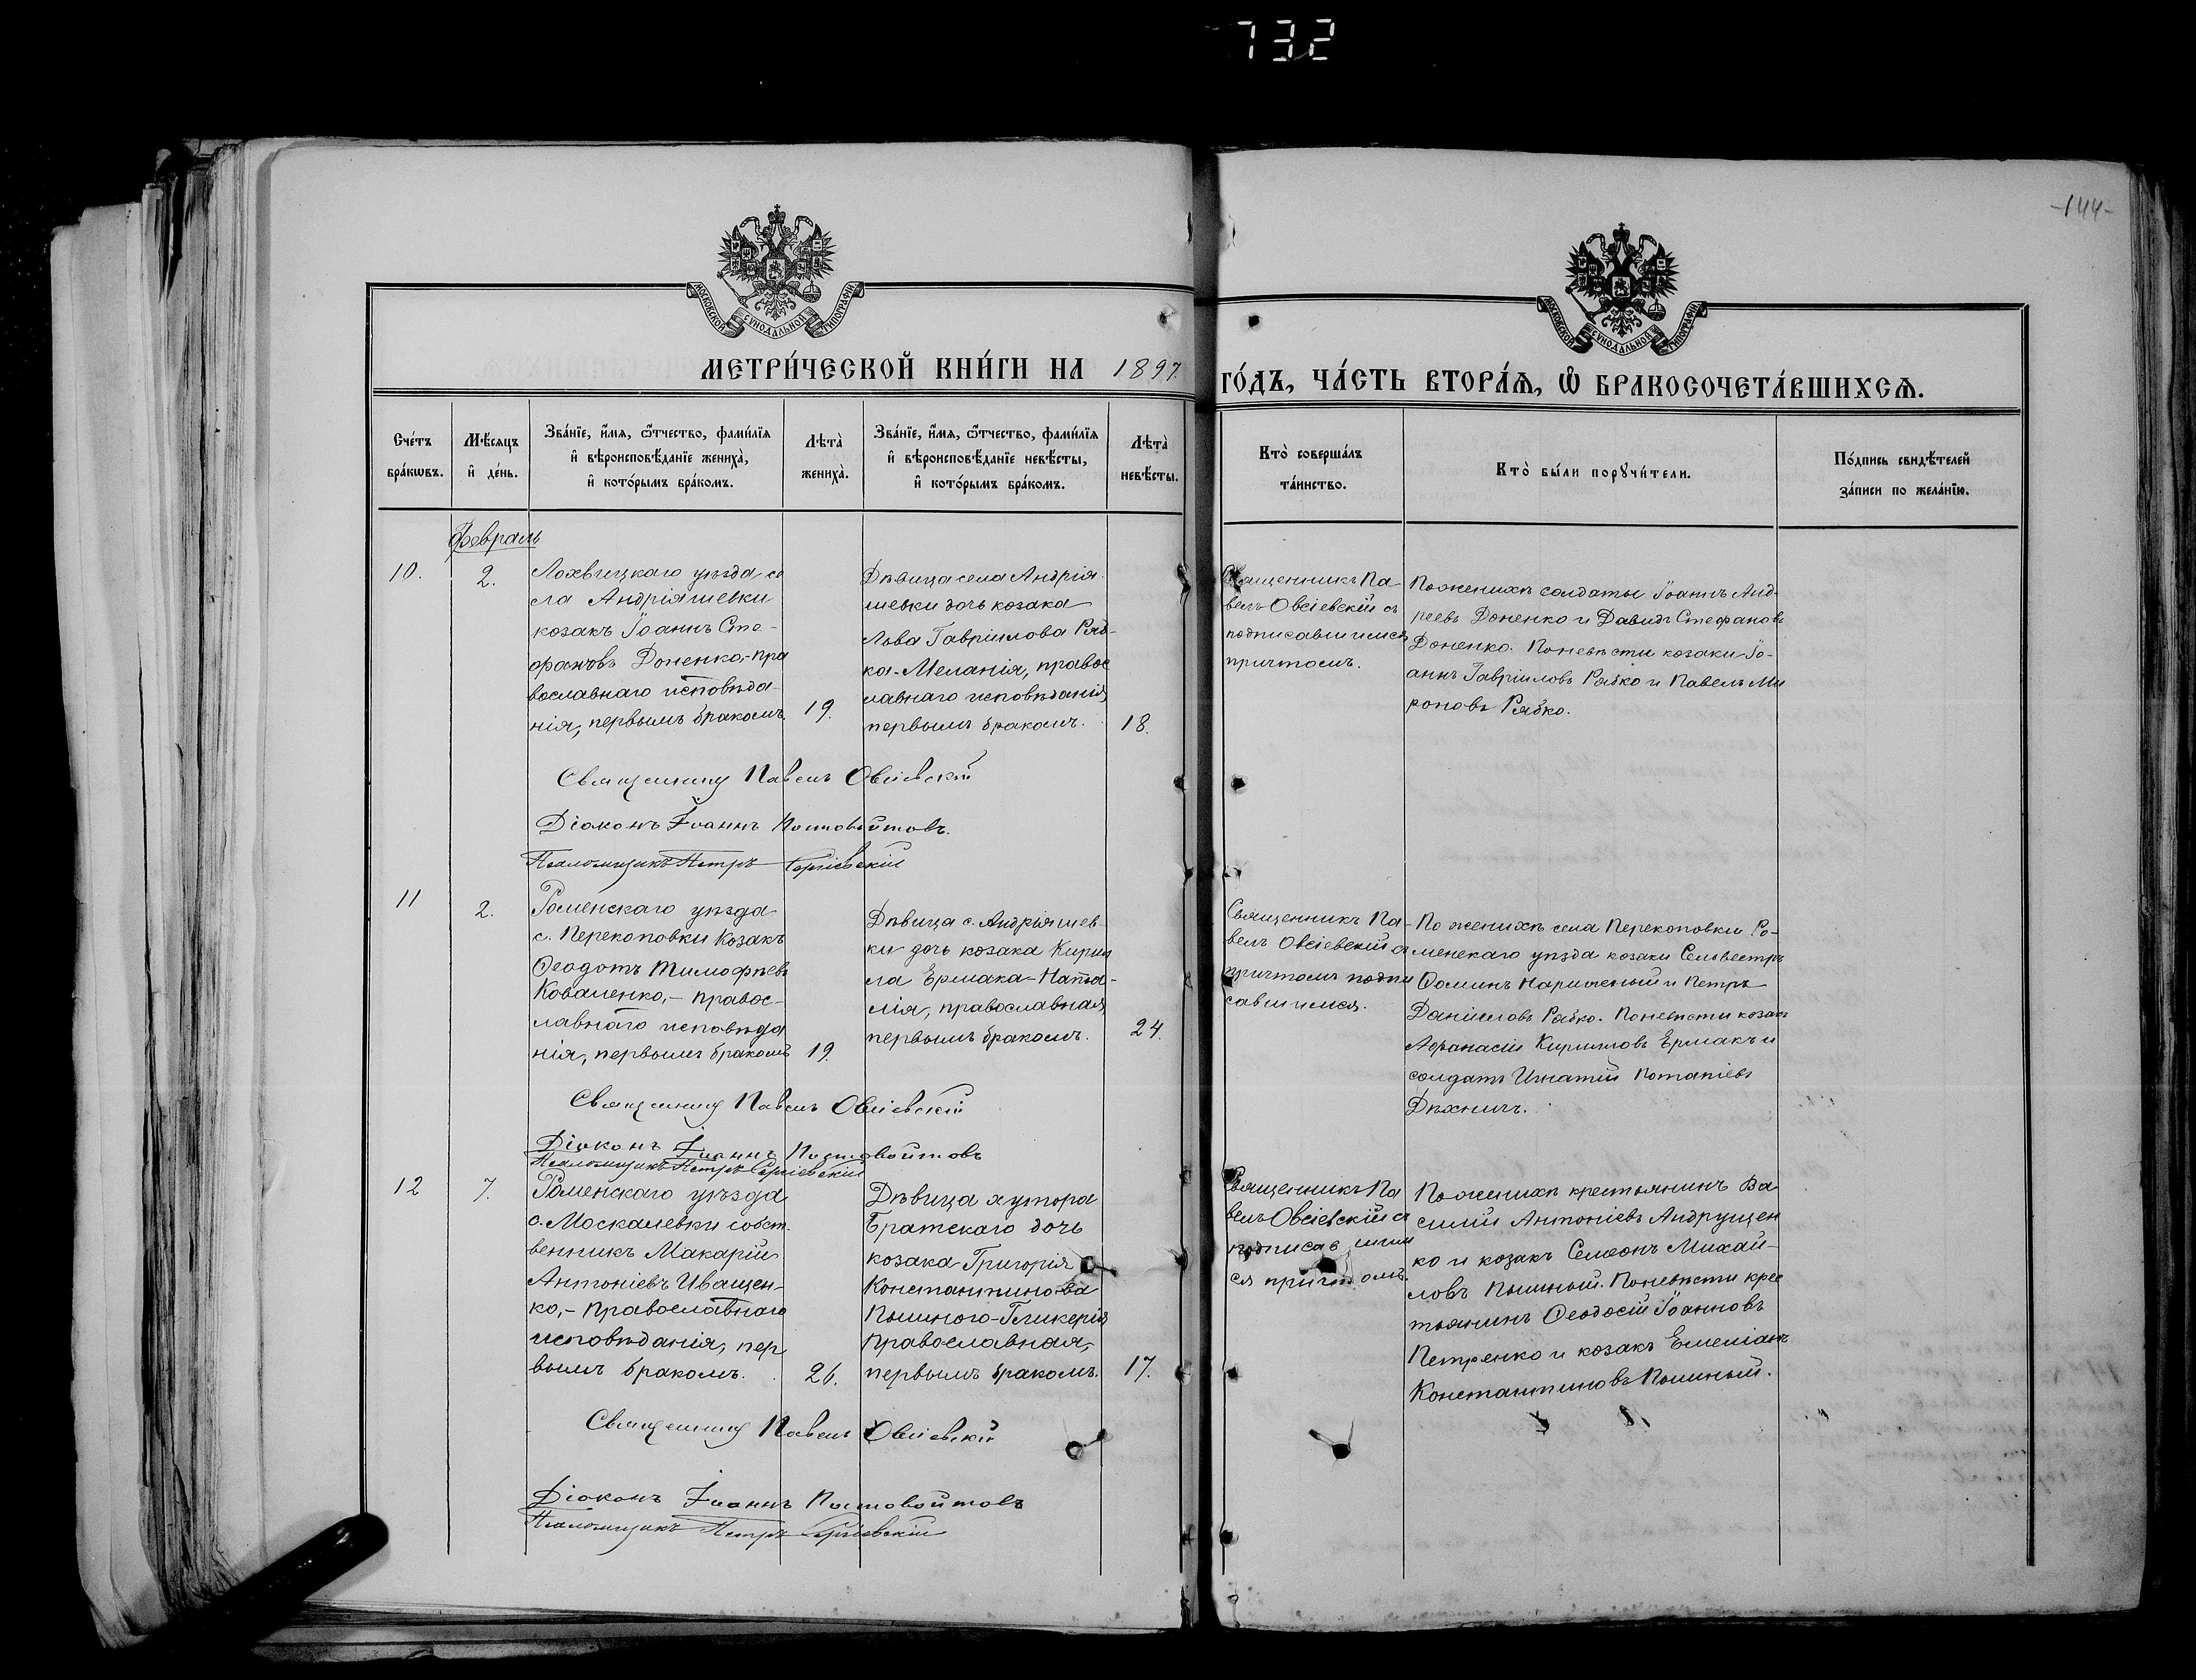 732
-144-
МОСКОВСКОЙ СѴНОДАЛЬНОЙ ТИПОГРАФІИ
МОСКОВСКОЙ СѴНОДАЛЬНОЙ ТИПОГРАФІИ
МЕТРИ́ЧЕСКОЙ КНИ́ГИ НА 1897.
ГО́ДЪ, ЧА́СТЬ ВТОРА́Ѧ, Ѽ БРАКОСОЧЕТА́ВШИХСѦ.
Сче́тъ
бра́кѡвъ.
Мѣ́сяцъ
и҆ де́нь.
Зва́нїе, и҆́мѧ, ѻ҆́тчество, фами́лїѧ
и҆ вѣроисповѣ́данїе жениха̀,
и҆ кото́рымъ бра́комъ.
Лѣта̀
жениха̀.
Зва́нїе, и҆́мѧ, ѻ҆́тчество, фами́лїѧ
и҆ вѣроисповѣ́данїе невѣ́сты,
и҆ кото́рымъ бра́комъ.
Лѣта̀
невѣ́сты.
Кто̀ соверша́лъ
та́инство.
Кто̀ бы́ли порꙋчи́тели.
По́дпись свидѣ́телей
за́писи по жела́нїю.
Февраль
10.
2.
Лохвицкаго уѣзда се
ла Андріяшевки
козакъ Іоаннъ Сте-
фановъ Доненко,-пра
вославнаго исповѣда-
нія, первымъ бракомъ.
19.
Дѣвица села Андрія-
шевки дочь козака
Льва Гавріилова Ряб-
ка-Меланія, правос
лавнаго исповѣданія,
первымъ бракомъ.
18.
Священникъ Па
велъ Овсіевскій съ
подписавшимся
причтомъ.
По женихѣ солдаты Іоаннъ Анд-
реевъ Доненко и Давидъ Стефановъ
Доненко. По невѣсти козаки Іо-
аннъ Гавріиловъ Рябко и Павелъ Ми
роновъ Рябко.
Священникъ Павелъ Овсіевскій
Діаконъ Іоаннъ Постовойтовъ.
Псаломщикъ Петръ Сергіевскій
11
2.
Роменскаго уѣзда
с. Перекоповки Козакъ
Ѳеодотъ Тимофѣевъ
Коваленко,- правос-
лавнаго исповѣда
нія, первымъ бракомъ
19.
Дѣвица с. Андріяшев-
ки дочь козака Кирил
ла Ермака-Ната-
лія, православная,
первымъ бракомъ.
24.
Священникъ Па-
велъ Овсіевскій съ
причтомъ подпи
савшимся.
По женихѣ села Перекоповки Ро-
менскаго уѣзда козаки Сельвестръ
Ѳоминъ Нарыжный и Петръ
Даніиловъ Рябко. По невѣсти козакъ
Афанасій Кирилловъ Ермакъ и
солдатъ Игнатій Потапіевъ
Дѣхничъ.
Священникъ Павелъ Овсіевскій
Діаконъ Іоаннъ Постовойтовъ
Псаломщикъ Петръ Сергіевскій
12
7.
Роменскаго уѣзда
с. Москалевки собст-
венникъ Макарій
Антоніевъ Иващен-
ко,- православнаго
исповѣданія, пер
вымъ бракомъ.
26.
Дѣвица хутора
Братскаго дочь
козака Григорія
Константинова
Пышного-Гликерія
православная,
первымъ бракомъ.
17.
Священникъ Па
велъ Овсіевскій съ
подписавшим
ся причтомъ.
По женихѣ крестьянинъ Ва
силій Антоніевъ Андрущен
ко и козакъ Симеонъ Михай-
ловъ Пышный. По невѣсти крес
тьянинъ Ѳеодосій Іоанновъ
Петренко и козакъ Емеліанъ
Константиновъ Пышный.
Священникъ Павелъ Овсіевскій
Діаконъ Іоаннъ Постовойтовъ
Псаломщикъ Петръ Сергіевскій